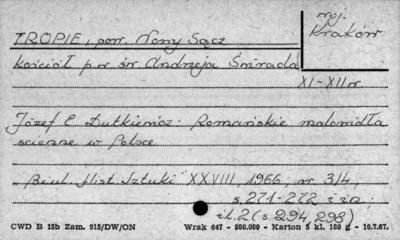 woj.
Kraków
TROPIE, pow. Nowy Sącz
kościół p.w św Andrzeja Świrada
XI-XII w.
Józef E Dutkiewicz: Romańskie malowidła
ścienne w Polsce
"Biul. Hist Sztuki" XXVIII, 1966, nr 3/4,
s. 271-272 i in;
il. 2 (s. 294, 298)
CWD B 15b Zam. 915/DW/ON Wrak 647 - 980.000 - Karton 5 kl. 180 g - 10.7.67.